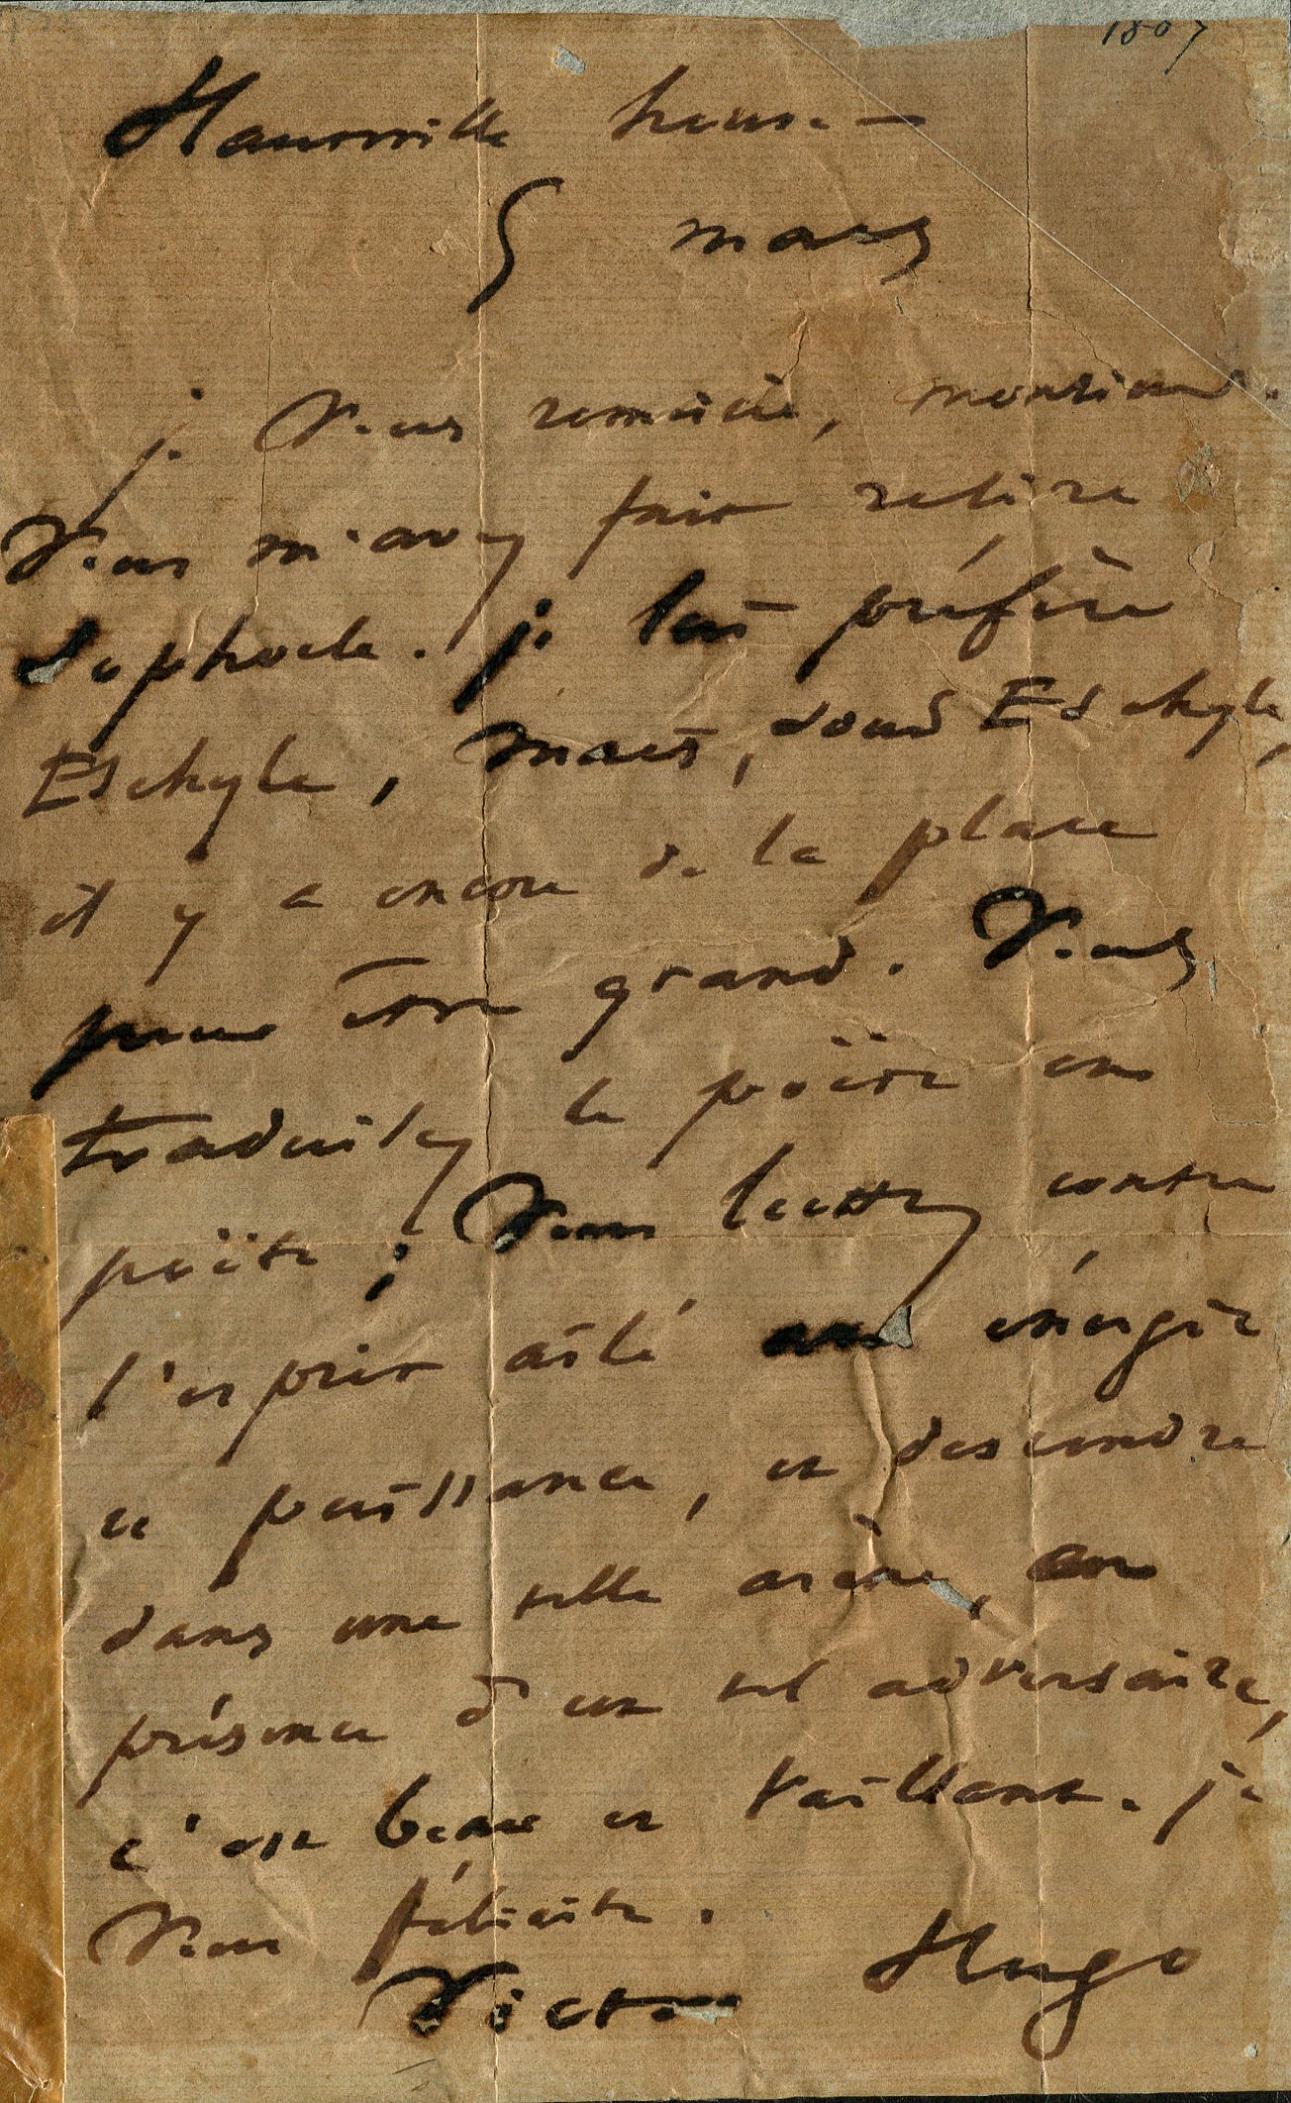 1867
Hauteville house —
5 mars
je vous remercie, monsieur.
Vous m'avez fait relire
Sophocle. je lui préfère
Eschyle, mais, sous Eschyle,
il y a encore de la place
pour être grand. Vous
traduisez le poëte en
poëte ; vous luttez contre
l'esprit ailé avec énergie
et puissance, et descendre
dans une telle arène, en
présence d'un tel adversaire,
c'est beau et vaillant. je
vous félicite.
Victor Hugo